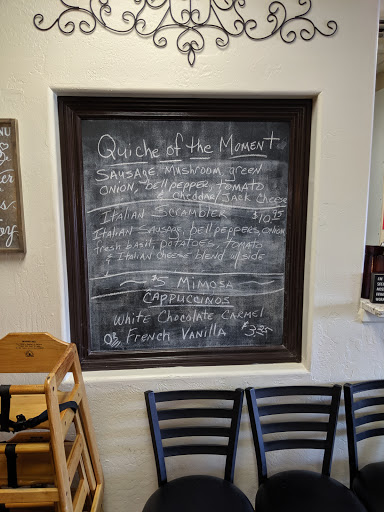 Quiche of the Moment
Sausage, Mushroom, green
onion, bell pepper, tomato
& cheddar/Jack Cheese
Italian Scrambler $10.95
Italian Sausage, bell peppers, onion
fresh basil, potatoes, tomato
& Italian cheese blend w/side
~ $5 Mimosa ~
Cappuccinos
White Chocolate Carmel
OR French Vanilla $3.25
NU